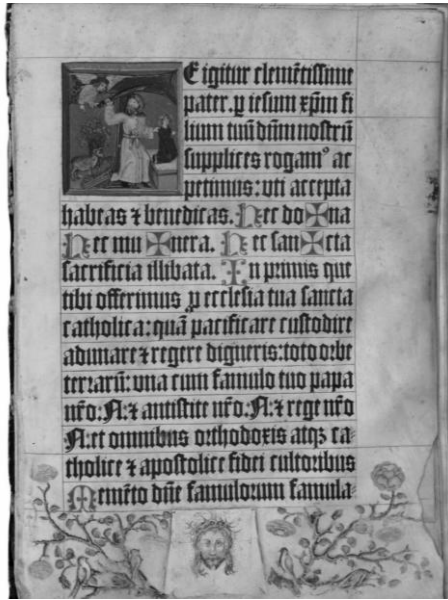 E igitur clemētissime
pater. ꝑ iesum xp̄m fi
lium tuū dūm nostrū
supplices rogamꝰ ac
petimus: vti accepta
habeas ⁊ benedicas. Hec do✠na
Hec mu✠nera. Hec san✠cta
sacrificia illibata. In primis que
tibi offerimus ꝓ ecclesia tua sancta
catholica: quā pacificare custodire
adunare ⁊ regere digneris: toto orbe
terrarū: vna cum famulo tuo papa
nr̄o: N: ⁊ antistite nr̄o: N: ⁊ rege nr̄o
N: et omnibus orthodoxis atqꝫ ca-
tholice ⁊ apostolice fidei cultoribus
Memēto dn̄e famulorum famula-